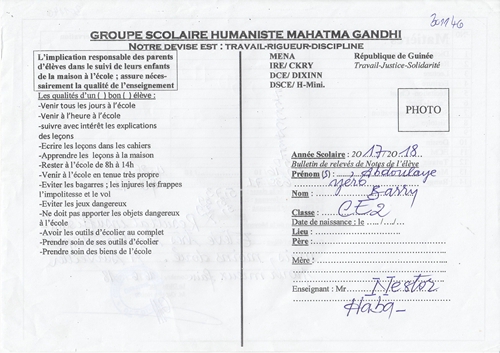 GROUPE SCOLAIRE HUMANISTE MAHATMA GANDHI
NOTRE DEVISE EST : TRAVAIL-RIGUEUR-DISCIPLINE
L'implication responsable des parents
d'élèves dans le suivi de leurs enfants
de la maison à l'école ; assure néces-
sairement la qualité de l'enseignement
Les qualités d'un ( ) bon ( ) élève :
-Venir tous les jours à l'école
-Venir à l'heure à l'école
-suivre avec intérêt les explications
des leçons
-Ecrire les leçons dans les cahiers
-Apprendre les leçons à la maison
-Rester à l'école de 8h à 14h
-Venir à l'école en tenue très propre
-Eviter les bagarres ; les injures les frappes
l'impolitesse et le vol
-Eviter les jeux dangereux
-Ne doit pas apporter les objets dangereux
à l'école
-Avoir les outils d'écolier au complet
-Prendre soin de ses outils d'écolier
-Prendre soin des biens de l'école
MENA
IRE/ CKRY
DCE/ DIXINN
DSCE/ H-Mini.
République de Guinée
Travail-Justice-Solidarité
PHOTO
Année Scolaire : 2017/2018
Bulletin de relevés de Notes de l'élève
Prénom (s) : Abdoulaye
yéro
Nom : Barry
Classe : CE2
Date de naissance : le …./…./….
Lieu :
Père :
Mère :
Enseignant : Mr Nestor
Haba